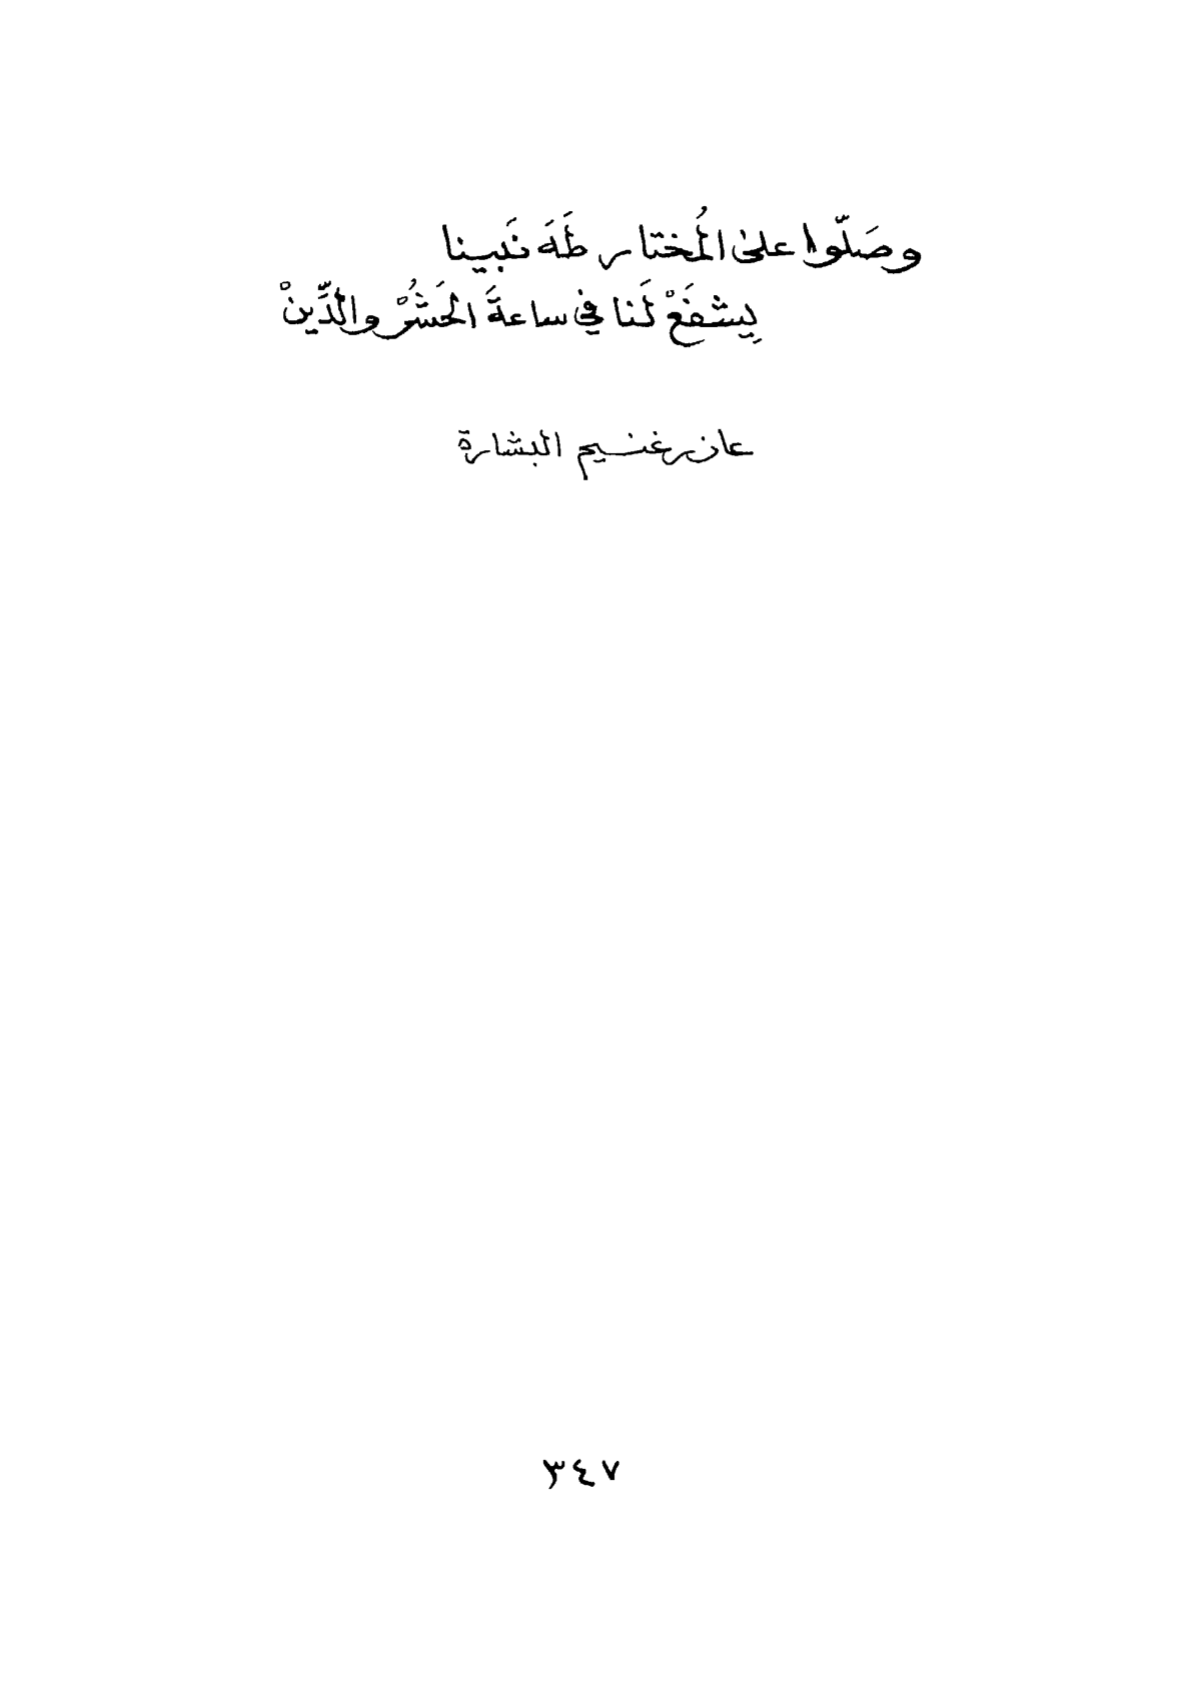 وصَلّوا على المُختار طَهَ نَبينا
بِيشفَعْ لَنا في ساعةَ الحَشُرْ والدِّينْ
عازر غنيم البشارة
٣٤٧